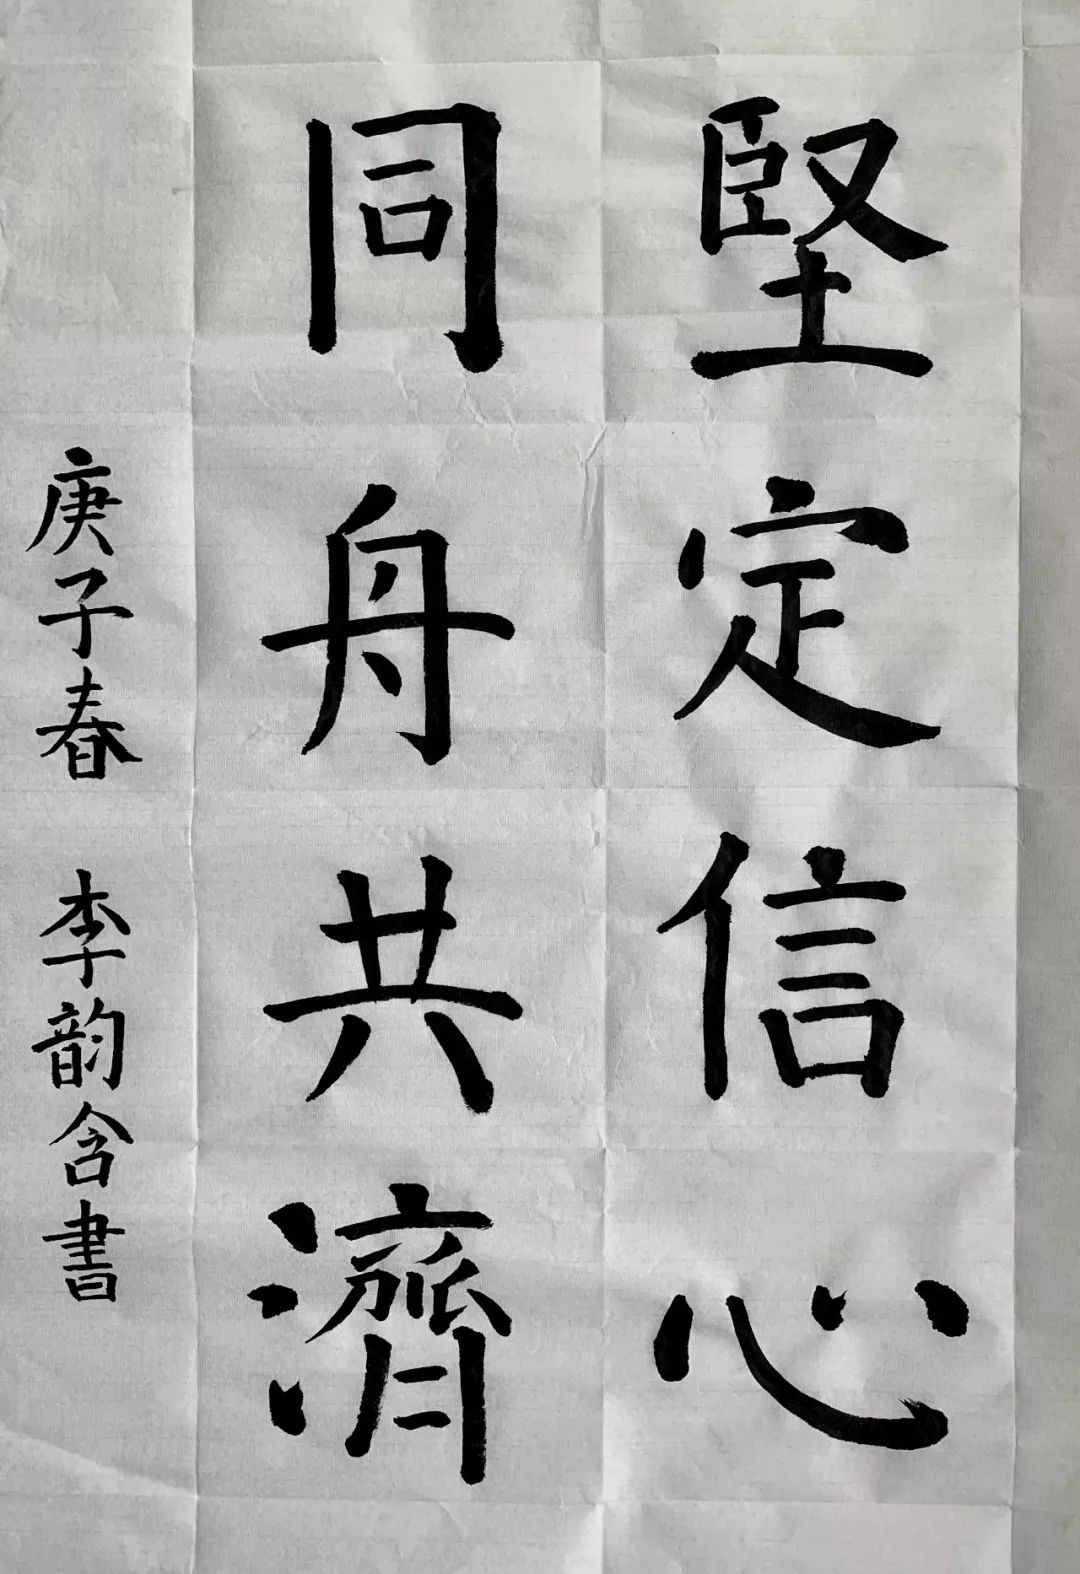 堅定信心
同舟共濟
庚子春 李韵含書